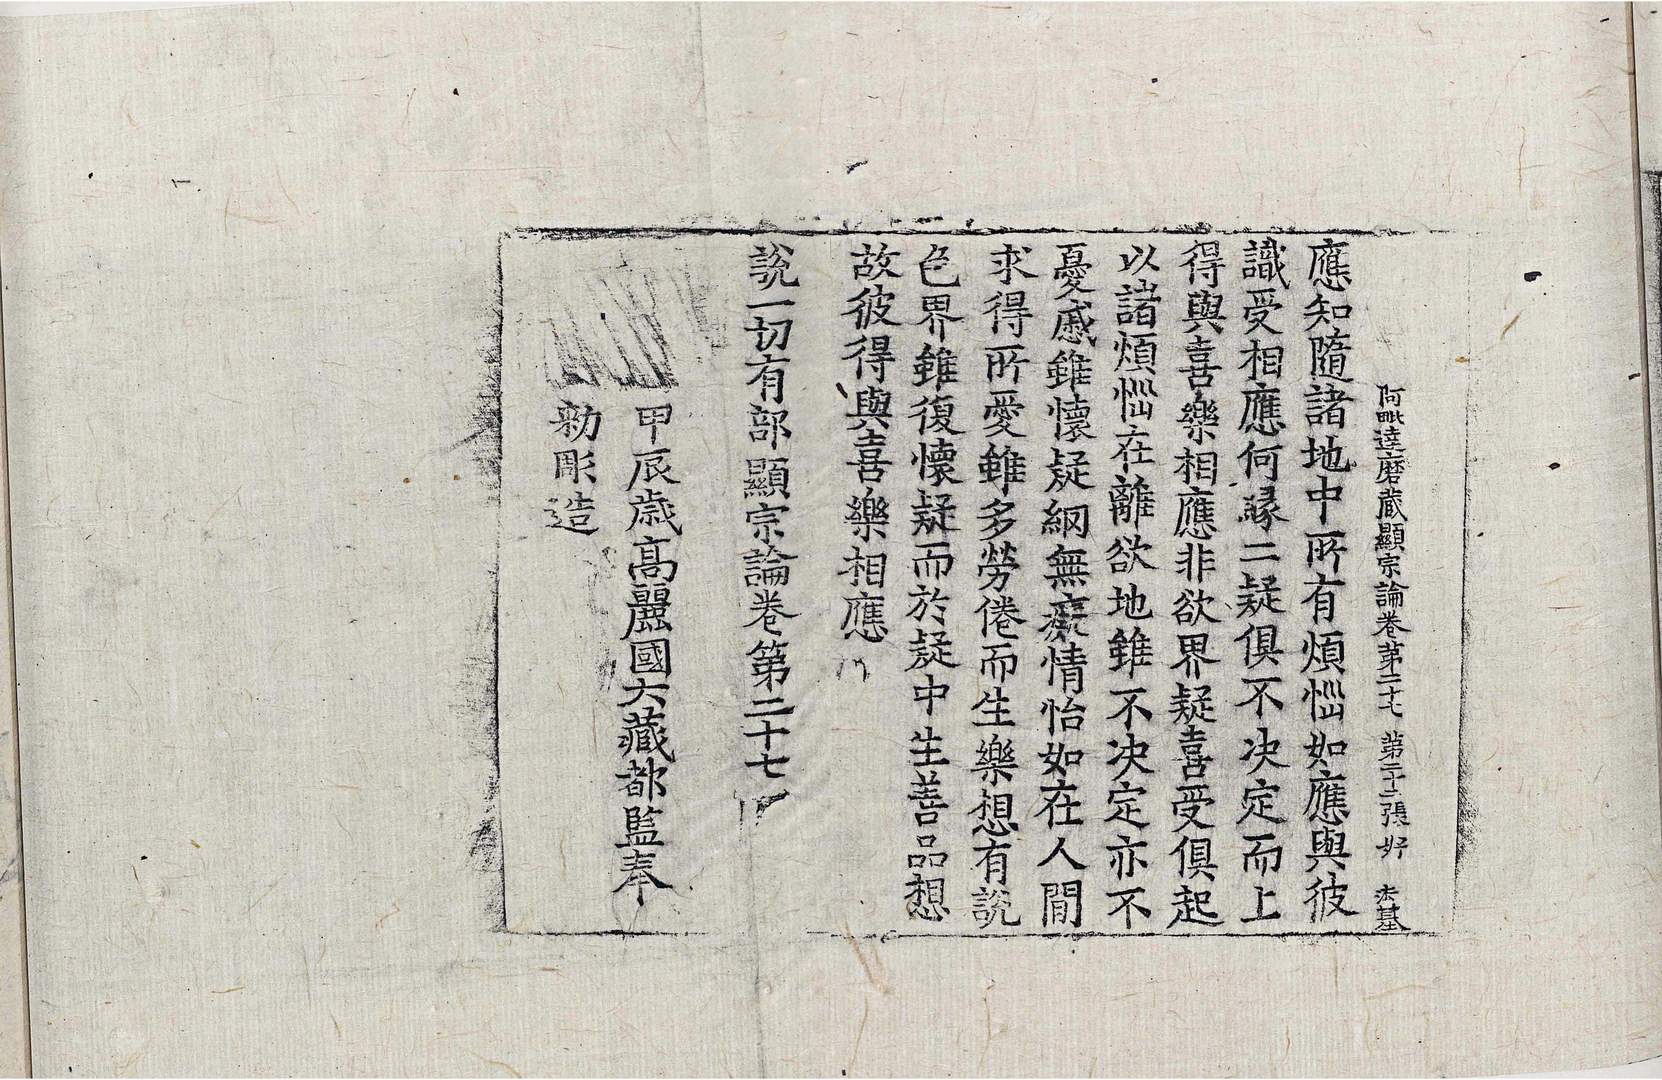 阿毗達磨藏顯宗論卷第二十七 第二十二張 好
應知隨諸地中所有煩惱如應與彼
識受相應何緣二疑俱不決定而上
得與喜樂相應非欲界疑喜受俱起
以諸煩惱在離欲地雖不決定亦不
憂慼雖懷疑網無癈情怡如在人閒
求得所愛雖多勞倦而生樂想有說
色界雖復懷疑而於疑中生善品想
故彼得與喜樂相應
說一切有部顯宗論卷第二十七
甲辰歲高麗國大藏都監奉
勑彫造